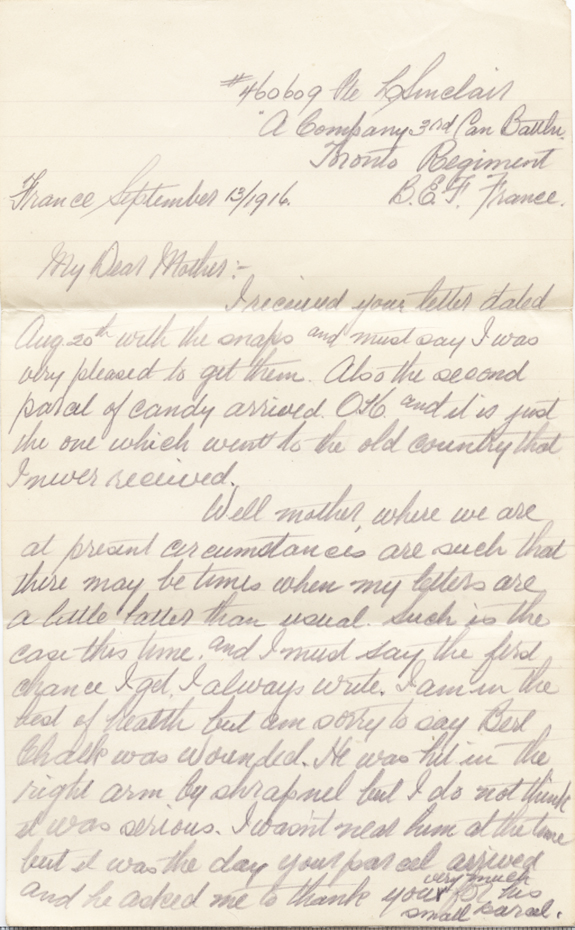 #460609 Pte L Sinclair
"A Company 3rd Can Battln.
Toronto Regiment
France September 13/1916. B.E.F. France.
My Dear Mother:-
I received your letter dated
Aug 20th with the snaps and must say I was
very pleased to get them. Also the second
parcel of candy arrived O.K. and it is just
the one which went to the old country that
I never received.
Well mother, where we are
at present circumstances are such that
there may be times when my letters are
a little latter than usual. Such is the
case this time, and I must say the first
chance I get, I always write. I am in the
best of health but am sorry to say Bert
Chalk was wounded. He was hit in the
right arm by shrapnel but I do not think
it was serious. I wasn't near him at the time
but it was the day your parcel arrived
and he asked me to thank you very much for his
small parcel.